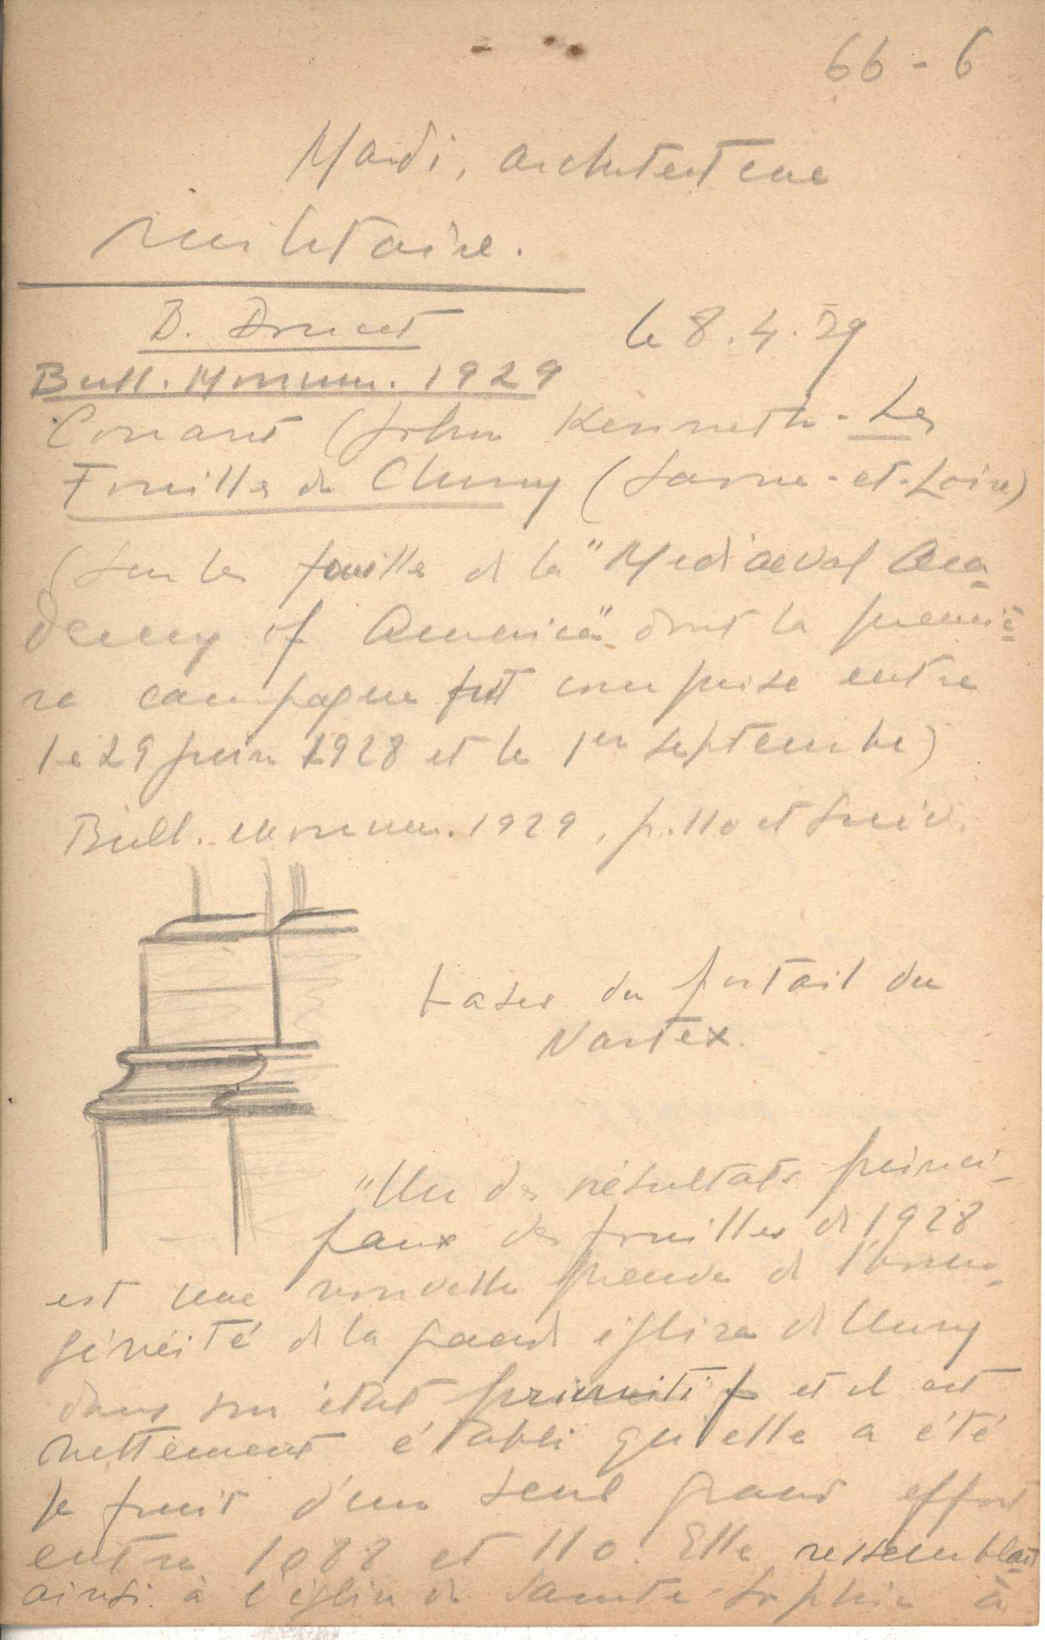 66-6
Mardi, architecture
militaire.
le 8.4.29
Bull. Monum. 1929
Conant (John Kenneth - Les
Fouilles de Cluny (Saone-et-Loire)
(Sur les fouilles de la "Mediaeval Aca-
demy of America" dont la premiè-
re campagne fut comprise entre
le 29 juin 1928 et le 1er septembre)
Bull. monum. 1929, p. 110 et suiv.
bases du portail du
Nartex.
"Un des résultats princi-
paux des fouilles de 1928
est une nouvelle preuve de l'homo-
généité de la grande église de Cluny
dans son état primitif et il est
nettement établi qu'elle a été
le fruit d'un seul grand effort
entre 1088 et 110. Elle ressemblait
ainsi à l'église de Sainte-Sophie à